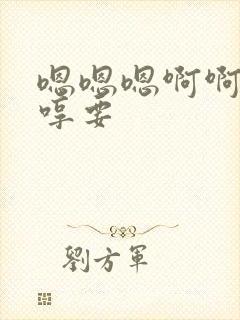 嗯嗯嗯啊啊
哼要
劉方軍